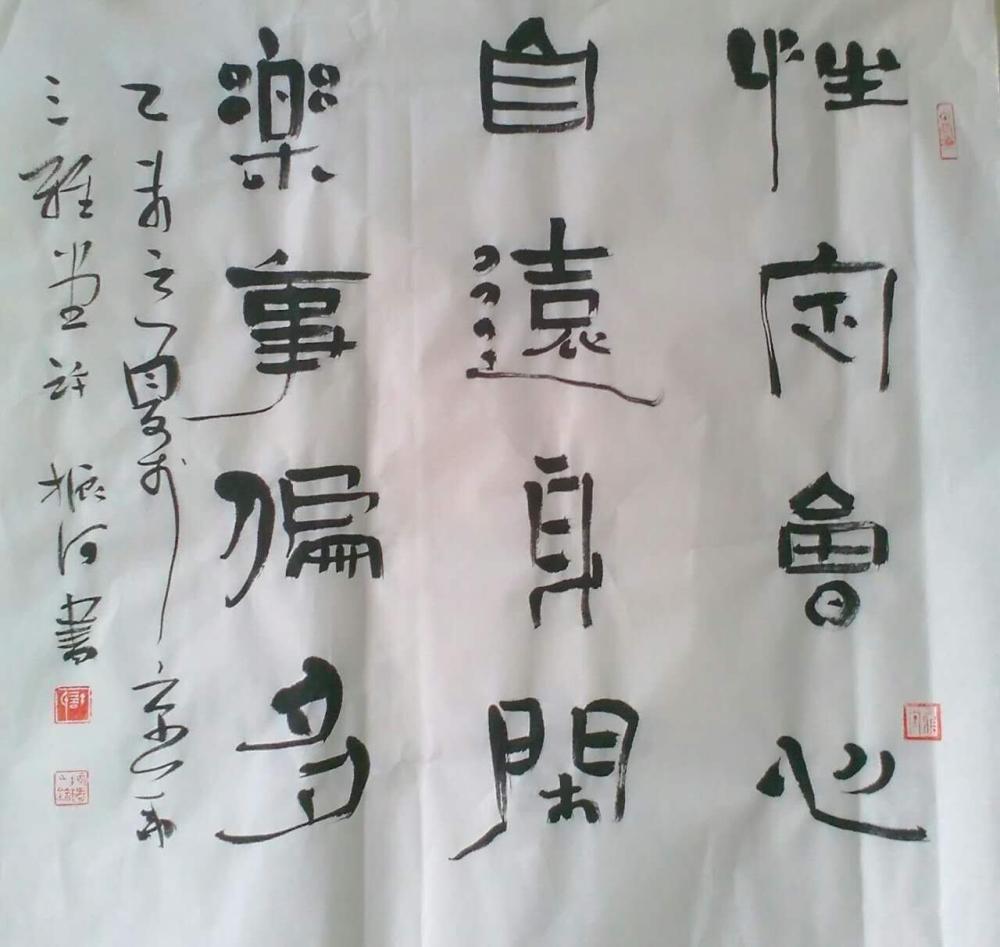 性定會心
自遠身閑
樂事偏多
乙未之夏於京
三雅堂許振河書